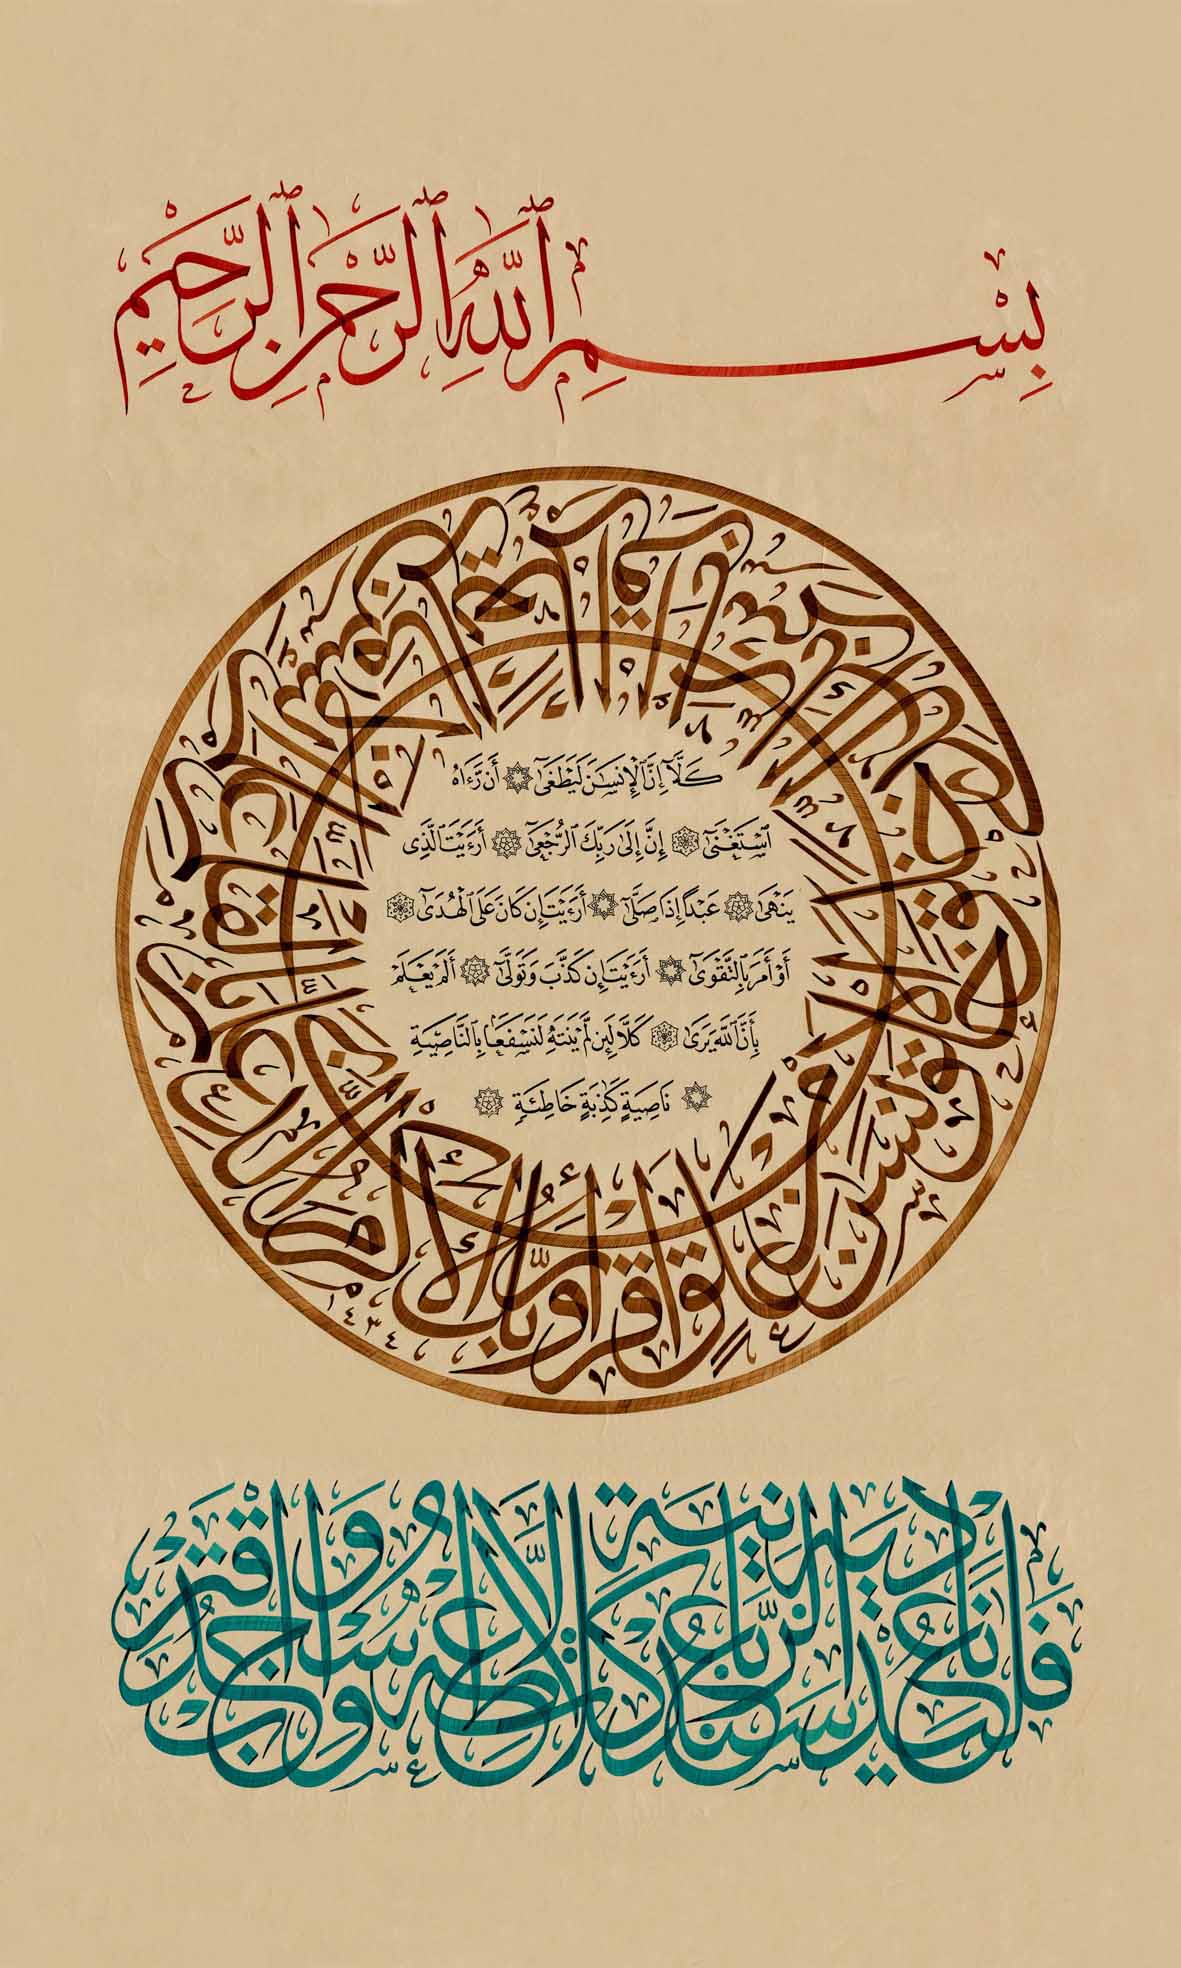 بِسْمِ ٱللَّهِ ٱلرَّحْمَٰنِ ٱلرَّحِيمِ
ٱقْرَأْ بِٱسْمِ رَبِّكَ ٱلَّذِى خَلَقَ خَلَقَ ٱلْإِنسَٰنَ مِنْ عَلَقٍ ٱقْرَأْ وَرَبُّكَ ٱلْأَكْرَمُ ٱلَّذِى عَلَّمَ بِٱلْقَلَمِ عَلَّمَ ٱلْإِنسَٰنَ مَا لَمْ يَعْلَمْ
كَلَّآ إِنَّ ٱلْإِنسَٰنَ لَيَطْغَىٰٓ أَن رَّءَاهُ
ٱسْتَغْنَىٰٓ إِنَّ إِلَىٰ رَبِّكَ ٱلرُّجْعَىٰٓ أَرَءَيْتَ ٱلَّذِى
يَنْهَىٰ عَبْدًا إِذَا صَلَّىٰٓ أَرَءَيْتَ إِن كَانَ عَلَى ٱلْهُدَىٰٓ
أَوْ أَمَرَ بِٱلتَّقْوَىٰٓ أَرَءَيْتَ إِن كَذَّبَ وَتَوَلَّىٰٓ أَلَمْ يَعْلَم
بِأَنَّ ٱللَّهَ يَرَىٰ كَلَّا لَئِن لَّمْ يَنتَهِ لَنَسْفَعًۢا بِٱلنَّاصِيَةِ
نَاصِيَةٍ كَٰذِبَةٍ خَاطِئَةٍ
فَلْيَدْعُ نَادِيَهُۥ سَنَدْعُ ٱلزَّبَانِيَةَ كَلَّا لَا تُطِعْهُ وَٱسْجُدْ وَٱقْتَرِب
١٤٣٤